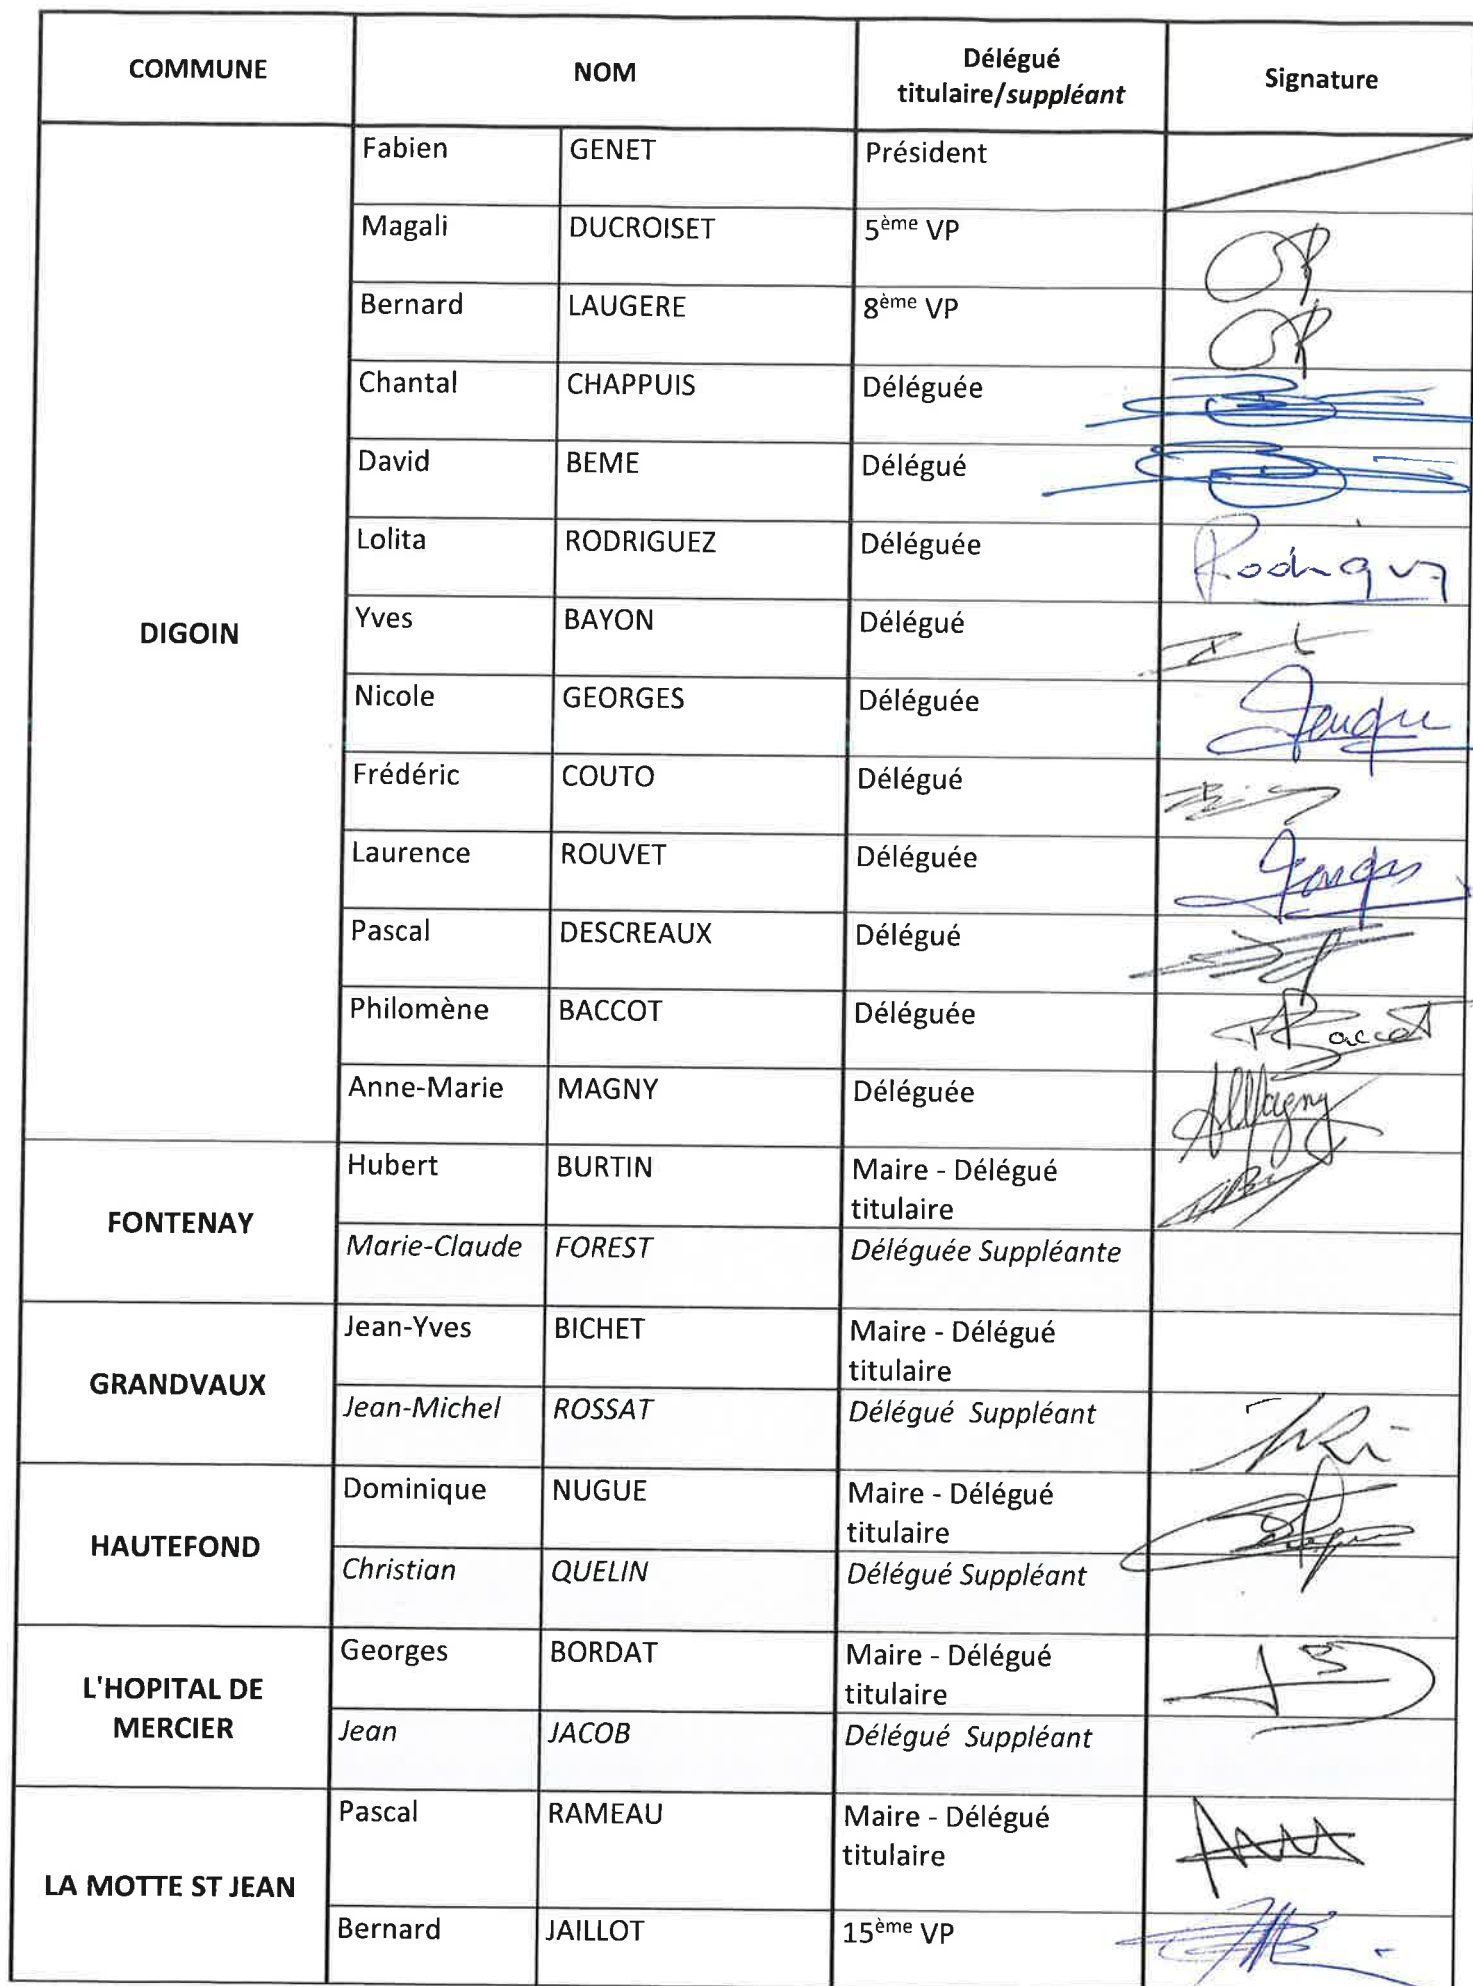 COMMUNE NOM Délégué titulaire/suppléant Signature
DIGOIN
Fabien GENET Président
Magali DUCROISET 5ème VP
Bernard LAUGERE 8ème VP
Chantal CHAPPUIS Déléguée
David BEME Délégué
Lolita RODRIGUEZ Déléguée
Yves BAYON Délégué
Nicole GEORGES Déléguée
Frédéric COUTO Délégué
Laurence ROUVET Déléguée
Pascal DESCREAUX Délégué
Philomène BACCOT Déléguée Baccot
Anne-Marie MAGNY Déléguée AMagny
FONTENAY
Hubert BURTIN Maire - Délégué titulaire
Marie-Claude FOREST Déléguée Suppléante
GRANDVAUX
Jean-Yves BICHET Maire - Délégué titulaire
Jean-Michel ROSSAT Délégué Suppléant
HAUTEFOND
Dominique NUGUE Maire - Délégué titulaire
Christian QUELIN Délégué Suppléant
L'HOPITAL DE MERCIER
Georges BORDAT Maire - Délégué titulaire
Jean JACOB Délégué Suppléant
LA MOTTE ST JEAN
Pascal RAMEAU Maire - Délégué titulaire
Bernard JAILLOT 15ème VP